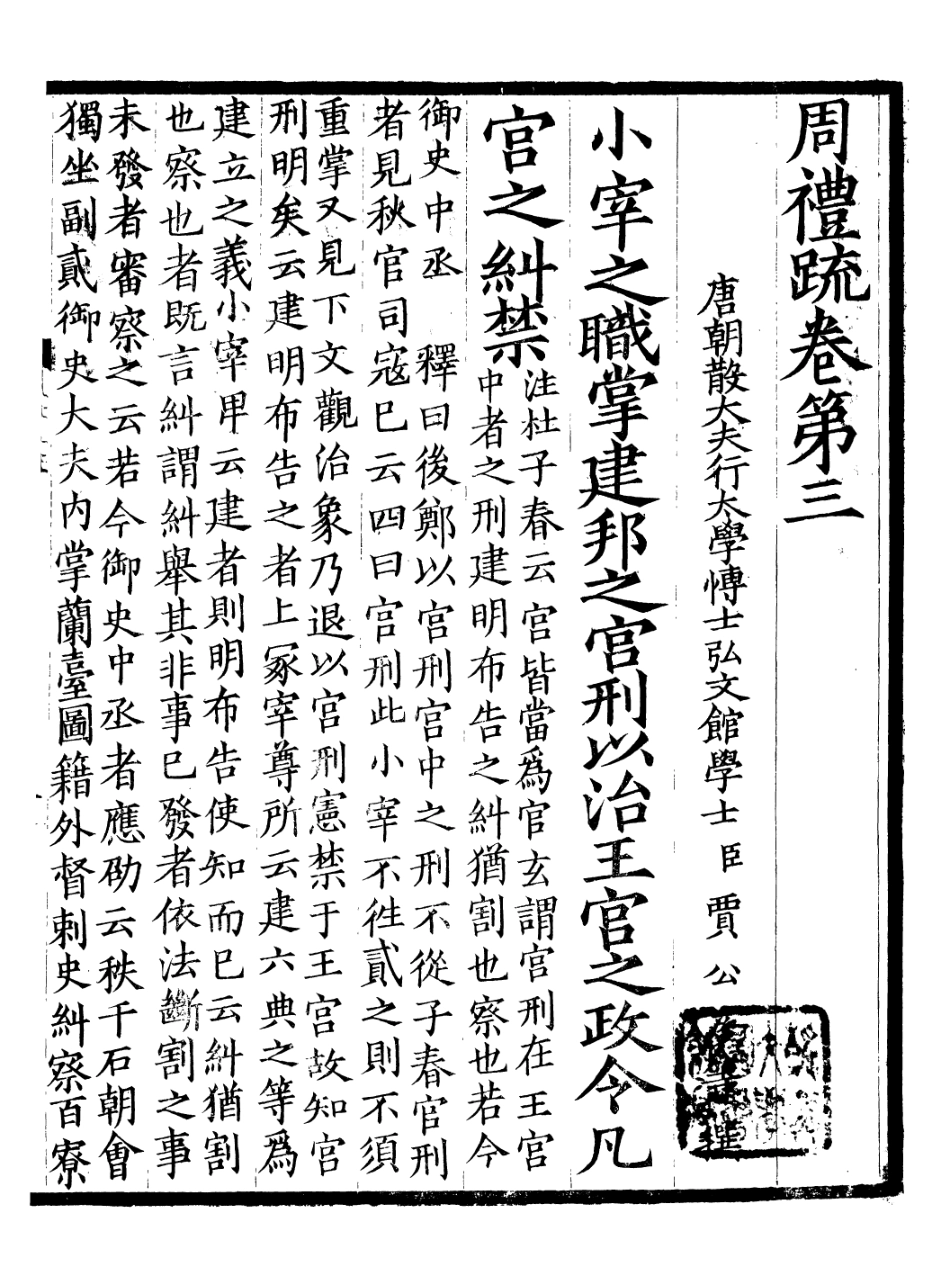 周禮疏卷第三
唐朝散大夫行太學博士弘文館學士臣賈公彥等撰
小宰之職掌建邦之宮刑以治王宮之政令凡
宮之糾禁
注杜子春云宮皆當爲官玄謂宮刑在王宮
中者之刑建明布告之糾猶割也察也若今
御史中丞　釋曰後鄭以宮刑宮中之刑不從子春官刑
者見秋官司寇已云四曰官刑此小宰不徃貳之則不須
重掌又見下文觀治象乃退以宮刑憲禁于王宮故知宮
刑明矣云建明布告之者上冢宰尊所云建六典之等爲
建立之義小宰卑云建者則明布告使知而已云糾猶割
也察也者既言糾謂糾舉其非事已發者依法斷割之事
未發者審察之云若今御史中丞者應劭云秩千石朝會
獨坐副貳御史大夫内掌蘭臺圖籍外督刺史糾察百寮